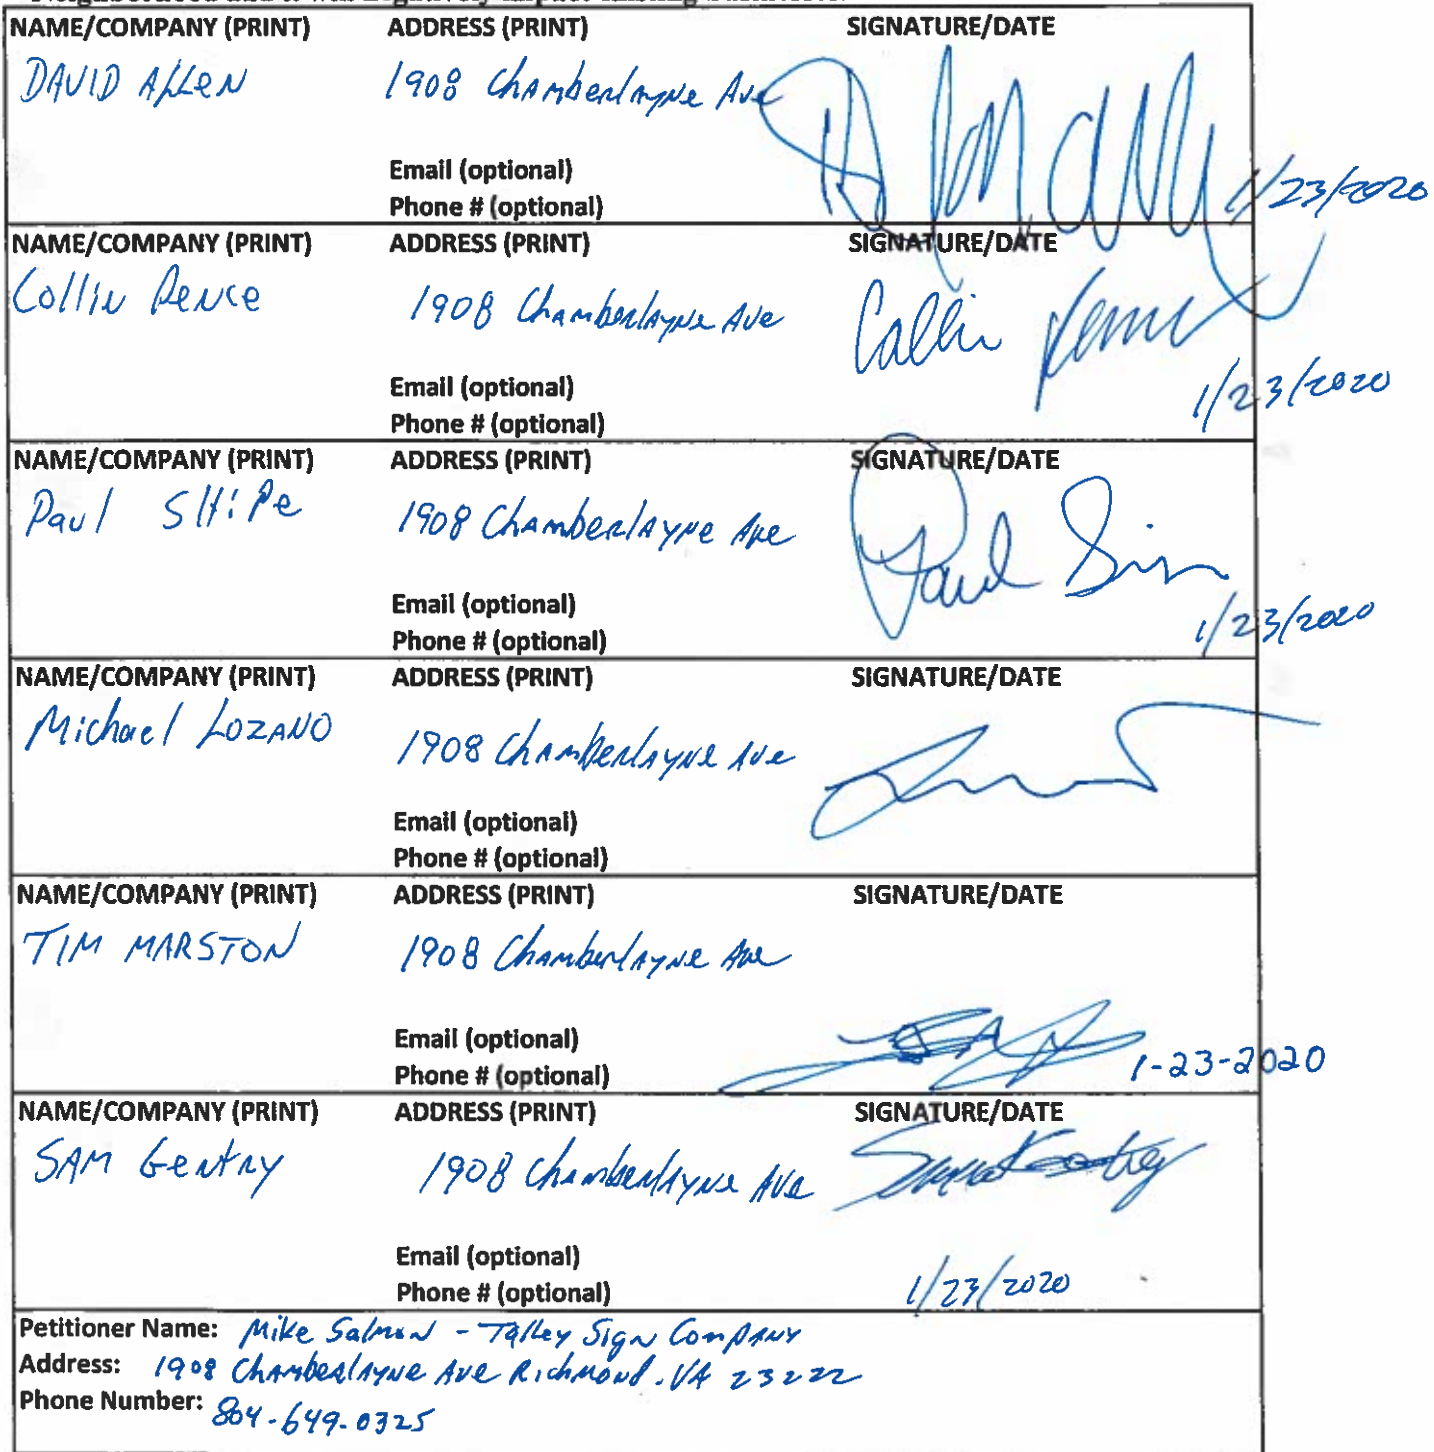 NAME/COMPANY (PRINT) ADDRESS (PRINT) SIGNATURE/DATE
DAVID ALLEN 1908 Chamberlayne Ave
Email (optional)
Phone # (optional) 1/23/2020
NAME/COMPANY (PRINT) ADDRESS (PRINT) SIGNATURE/DATE
Collin Pence 1908 Chamberlayne Ave Collin Pence
Email (optional) 1/23/2020
Phone # (optional)
NAME/COMPANY (PRINT) ADDRESS (PRINT) SIGNATURE/DATE
Paul SHiPe 1908 Chamberlayne Ave Paul
Email (optional)
Phone # (optional) 1/23/2020
NAME/COMPANY (PRINT) ADDRESS (PRINT) SIGNATURE/DATE
Michael LOZANO 1908 Chamberlayne Ave
Email (optional)
Phone # (optional)
NAME/COMPANY (PRINT) ADDRESS (PRINT) SIGNATURE/DATE
TIM MARSTON 1908 Chamberlayne Ave
Email (optional)
Phone # (optional) 1-23-2020
NAME/COMPANY (PRINT) ADDRESS (PRINT) SIGNATURE/DATE
SAM Gentry 1908 Chamberlayne Ave
Email (optional)
Phone # (optional) 1/23/2020
Petitioner Name: Mike Salmon - Talley Sign Company
Address: 1908 Chamberlayne Ave Richmond. VA 23222
Phone Number: 804-649-0325